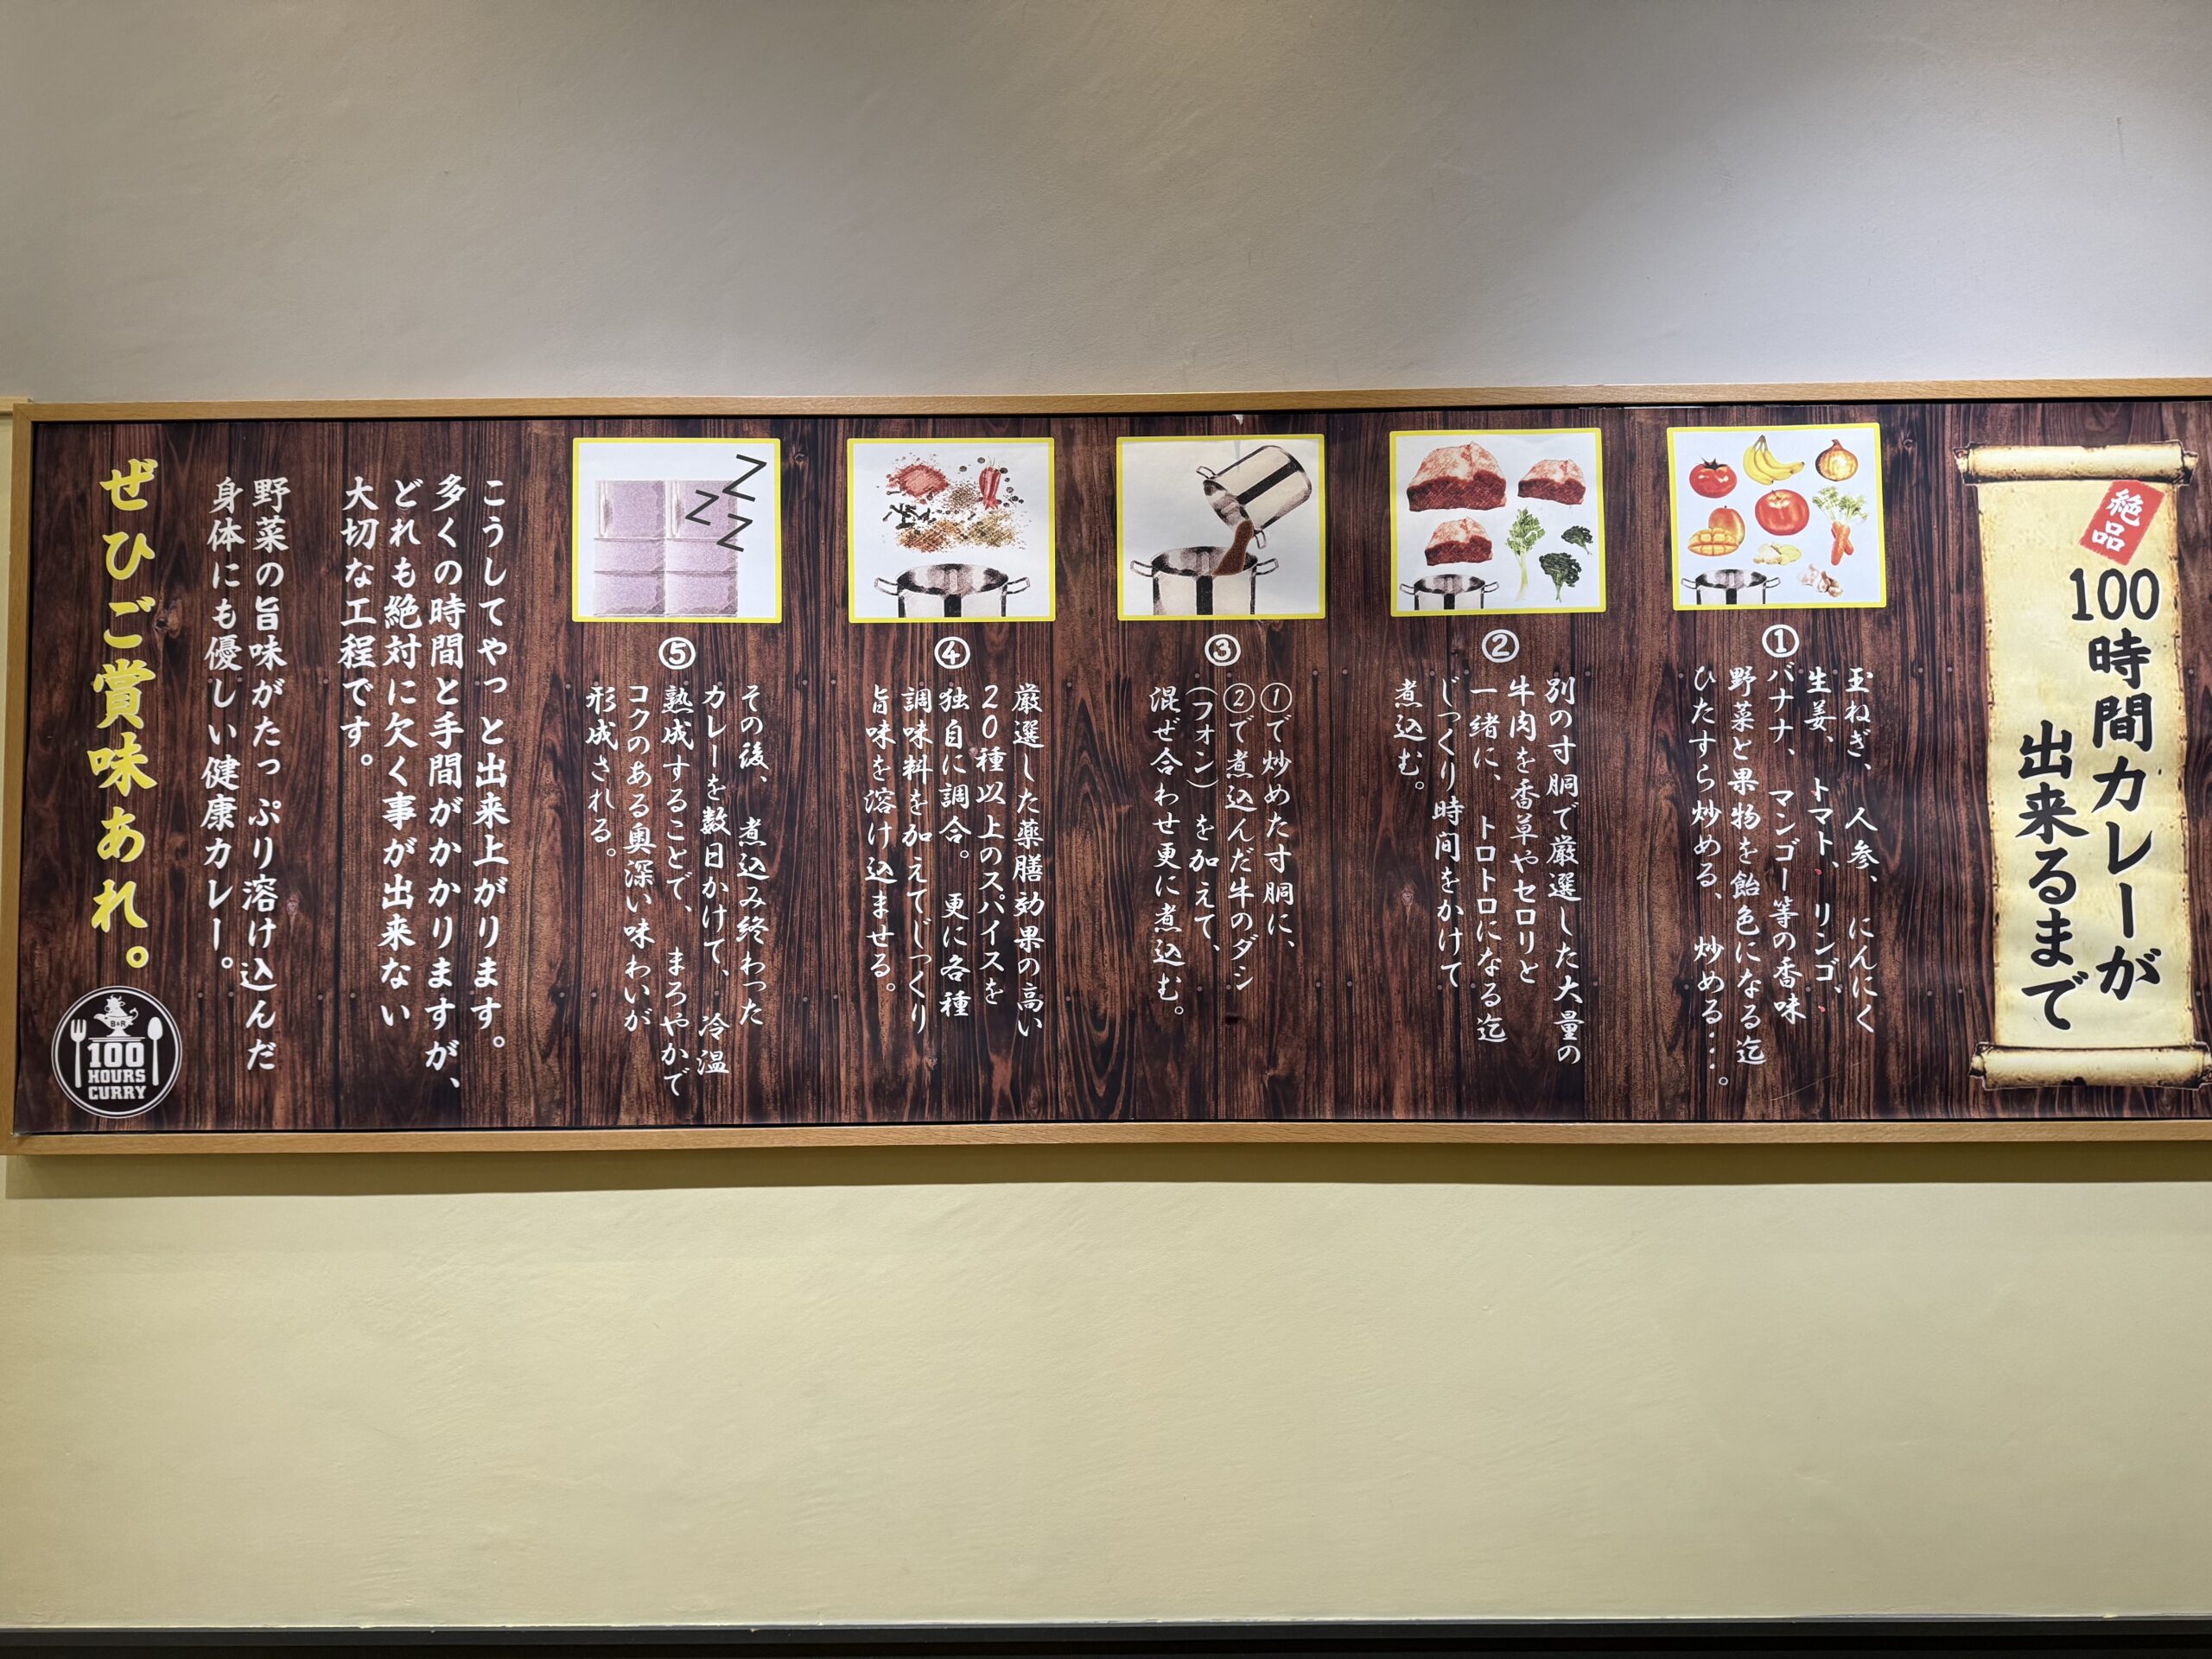 絶品
100時間カレーが
出来るまで
①
玉ねぎ、人参、にんにく
生姜、トマト、リンゴ、
バナナ、マンゴー等の香味
野菜と果物を飴色になる迄
ひたすら炒める、炒める…。
②
別の寸胴で厳選した大量の
牛肉を香草やセロリと
一緒に、トロトロになる迄
じっくり時間をかけて
煮込む。
③
①で炒めた寸胴に、
②で煮込んだ牛のダシ
(フォン)を加えて、
混ぜ合わせ更に煮込む。
④
厳選した薬膳効果の高い
20種以上のスパイスを
独自に調合。更に各種
調味料を加えてじっくり
旨味を溶け込ませる。
⑤
その後、煮込み終わった
カレーを数日かけて、冷温
熟成することで、まろやかで
コクのある奥深い味わいが
形成される。
ZZZ
こうしてやっと出来上がります。
多くの時間と手間がかかりますが、
どれも絶対に欠く事が出来ない
大切な工程です。
野菜の旨味がたっぷり溶け込んだ
身体にも優しい健康カレー。
ぜひご賞味あれ。
B&R
100
HOURS
CURRY